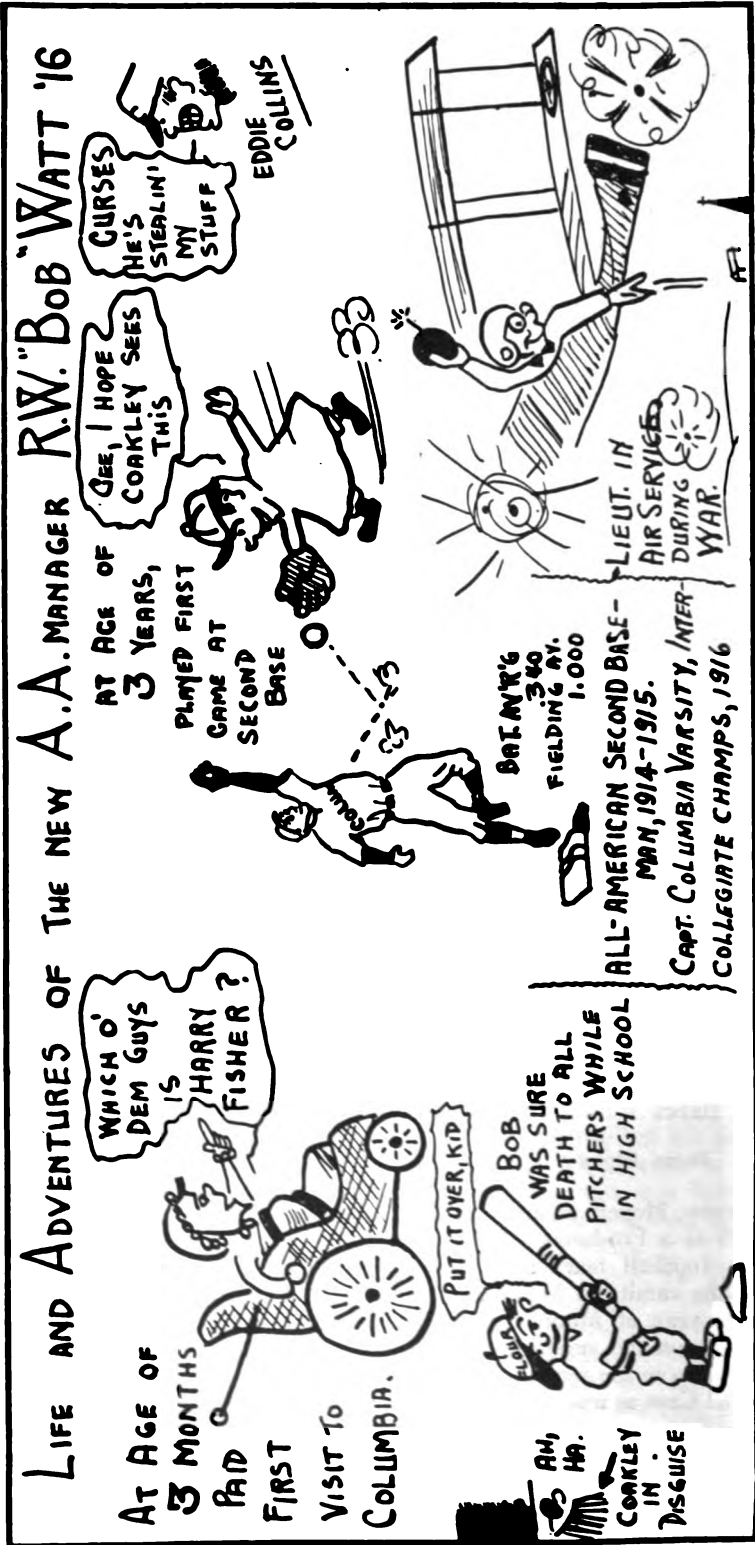 LIFE AND ADVENTURES OF THE NEW A.A. MANAGER R.W. "BOB" WATT '16
AT AGE OF
3 MONTHS
PAID
FIRST
VISIT TO
COLUMBIA.
WHICH O'
DEM GUYS
IS HARRY
FISHER?
AT AGE OF
3 YEARS,
PLAYED FIRST
GAME AT
SECOND
BASE
GEE, I HOPE
COAKLEY SEES
THIS
CURSES
HE'S
STEALIN'
MY
STUFF
EDDIE
COLLINS
AH,
HA.
COAKLEY
IN
DISGUISE.
PUT IT OVER, KID
BOB
WAS SURE
DEATH TO ALL
PITCHERS WHILE
IN HIGH SCHOOL
COLUM
BAT. AV'R'G
.340
FIELDING AV.
1.000
ALL-AMERICAN SECOND BASE-
MAN, 1914-1915.
CAPT. COLUMBIA VARSITY, INTER-
COLLEGIATE CHAMPS, 1916
LIEUT. IN
AIR SERVICE
DURING
WAR.